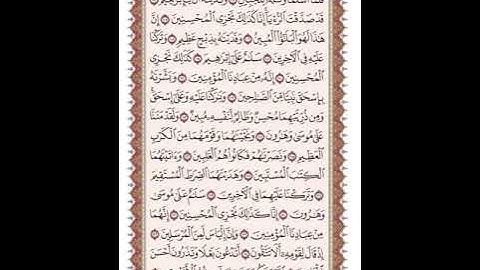 فَلَمَّآ أَسْلَمَا وَتَلَّهُۥ لِلْجَبِينِ ۝ وَنَٰدَيْنَٰهُ أَن يَٰٓإِبْرَٰهِيمُ ۝
قَدْ صَدَّقْتَ ٱلرُّءْيَآ إِنَّا كَذَٰلِكَ نَجْزِى ٱلْمُحْسِنِينَ ۝ إِنَّ
هَٰذَا لَهُوَ ٱلْبَلَٰٓؤُا۟ ٱلْمُبِينُ ۝ وَفَدَيْنَٰهُ بِذِبْحٍ عَظِيمٍ ۝ وَتَرَكْنَا
عَلَيْهِ فِى ٱلْءَاخِرِينَ ۝ سَلَٰمٌ عَلَىٰٓ إِبْرَٰهِيمَ ۝ كَذَٰلِكَ نَجْزِى
ٱلْمُحْسِنِينَ ۝ إِنَّهُۥ مِنْ عِبَادِنَا ٱلْمُؤْمِنِينَ ۝ وَبَشَّرْنَٰهُ
بِإِسْحَٰقَ نَبِيًّا مِّنَ ٱلصَّٰلِحِينَ ۝ وَبَٰرَكْنَا عَلَيْهِ وَعَلَىٰٓ إِسْحَٰقَ
وَمِن ذُرِّيَّتِهِمَا مُحْسِنٌ وَظَالِمٌ لِّنَفْسِهِۦ مُبِينٌ ۝ وَلَقَدْ مَنَنَّا
عَلَىٰ مُوسَىٰ وَهَٰرُونَ ۝ وَنَجَّيْنَٰهُمَا وَقَوْمَهُمَا مِنَ ٱلْكَرْبِ
ٱلْعَظِيمِ ۝ وَنَصَرْنَٰهُمْ فَكَانُوا۟ هُمُ ٱلْغَٰلِبِينَ ۝ وَءَاتَيْنَٰهُمَا
ٱلْكِتَٰبَ ٱلْمُسْتَبِينَ ۝ وَهَدَيْنَٰهُمَا ٱلصِّرَٰطَ ٱلْمُسْتَقِيمَ
۝ وَتَرَكْنَا عَلَيْهِمَا فِى ٱلْءَاخِرِينَ ۝ سَلَٰمٌ عَلَىٰ مُوسَىٰ
وَهَٰرُونَ ۝ إِنَّا كَذَٰلِكَ نَجْزِى ٱلْمُحْسِنِينَ ۝ إِنَّهُمَا
مِنْ عِبَادِنَا ٱلْمُؤْمِنِينَ ۝ وَإِنَّ إِلْيَاسَ لَمِنَ ٱلْمُرْسَلِينَ ۝
إِذْ قَالَ لِقَوْمِهِۦٓ أَلَا تَتَّقُونَ ۝ أَتَدْعُونَ بَعْلًا وَتَذَرُونَ أَحْسَنَ